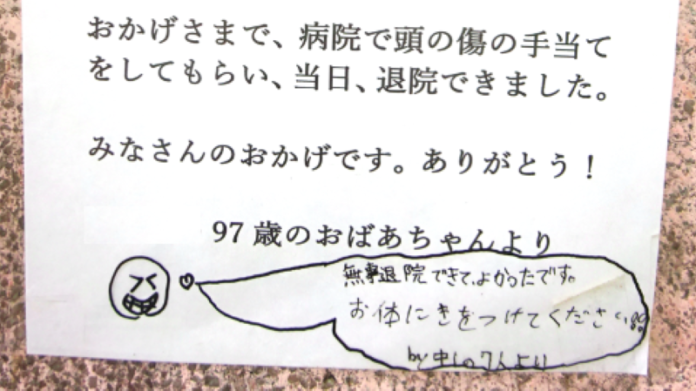 おかげさまで、病院で頭の傷の手当て
をしてもらい、当日、退院できました。
みなさんのおかげです。ありがとう！
97歳のおばあちゃんより
無事退院できて、よかったです。
お体にきをつけてください!!
by 中1の7人より